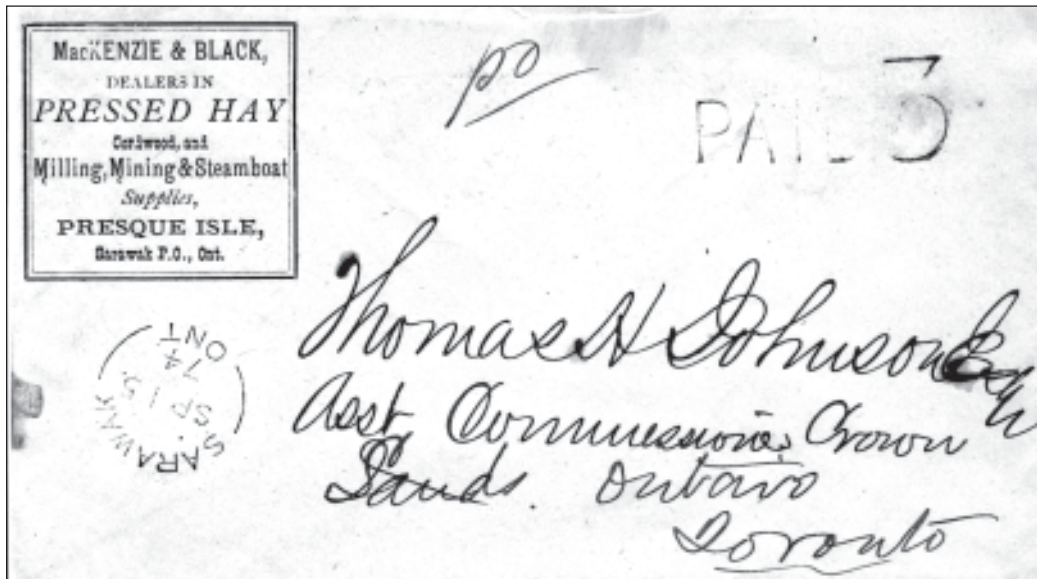 MacKENZIE & BLACK,
DEALERS IN
PRESSED HAY
Cordwood, and
Milling, Mining & Steamboat
Supplies,
PRESQUE ISLE,
Sarawak P.O., Ont.
po
PAID 3
Thomas H Johnson Esqr
Asst Commissioner Crown
Lands Ontario
Toronto
SARAWAK
SP 15
74
ONT